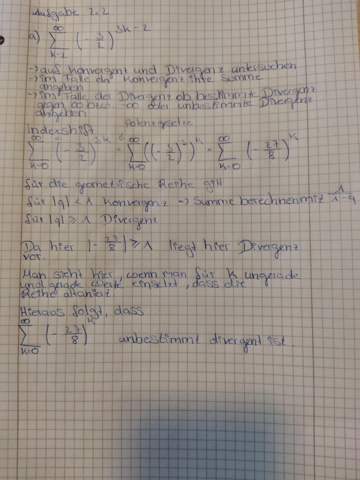 Aufgabe 2.2
a) \sum_{k=1}^{\infty} (-\frac{3}{2})^{3k-2}
→ auf Konvergenz und Divergenz untersuchen
→ im Falle der Konvergenz ihre Summe
angeben
→ im Falle der Divergenz ob bestimmte Divergenz
gegen ∞ bzw. -∞ oder unbestimmte Divergenz
Potenzgesetze
Indexshift
\sum_{k=0}^{\infty} (-\frac{3}{2})^{3k} = \sum_{k=0}^{\infty} ((-\frac{3}{2})^3)^k = \sum_{k=0}^{\infty} (-\frac{27}{8})^k
für die geometrische Reihe gilt
für |q| < 1 Konvergenz → Summe berechnen mit \frac{1}{1-q}
für |q| ≥ 1 Divergenz
Da hier |-\frac{27}{8}| ≥ 1 liegt hier Divergenz
vor.
Man sieht hier, wenn man für k ungerade
und gerade Werte einsetzt, dass die
Reihe
Hieraus folgt, dass
\sum_{k=0}^{\infty} (-\frac{27}{8})^k unbestimmt divergent ist